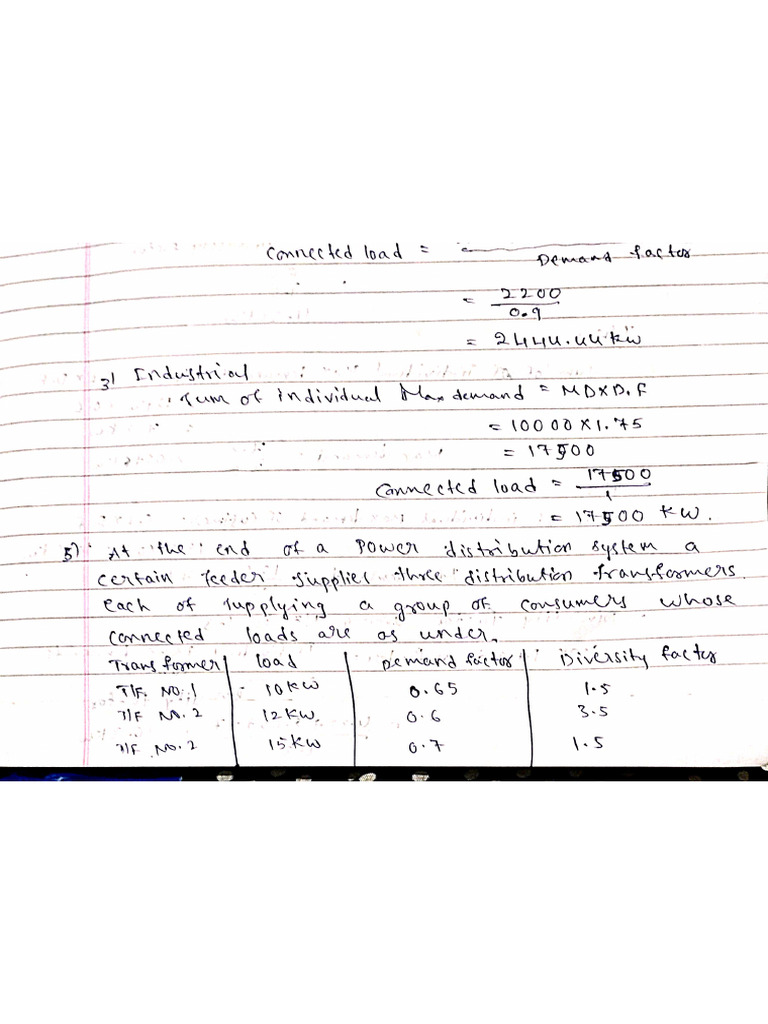 Connected load =
Demand factor
= 2200
0.9
= 2444.44 kw
3) Industrial
Sum of individual Max demand = MD×D.F
= 10000 × 1.75
= 17500
Connected load = 17500
1
= 17500 KW.
5) At the end of a Power distribution system a
certain feeder supplies three distribution transformers
each of supplying a group of consumers whose
connected loads are as under.
Transformer load Demand factor Diversity factor
T/F. NO. 1 10 KW 0.65 1.5
T/F NO. 2 12 KW. 0.6 3.5
T/F NO. 2 15 KW 0.7 1.5